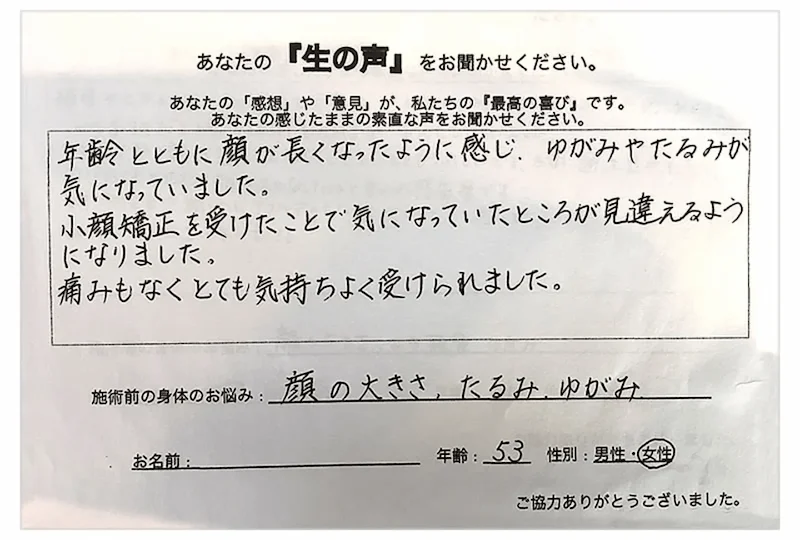 あなたの『生の声』をお聞かせください。
あなたの「感想」や「意見」が、私たちの『最高の喜び』です。
あなたの感じたままの素直な声をお聞かせください。
年齢とともに顔が長くなったように感じ、ゆがみやたるみが
気になっていました。
小顔矯正を受けたことで気になっていたところが見違えるよう
になりました。
痛みもなくとても気持ちよく受けられました。
施術前の身体のお悩み：顔の大きさ、たるみ、ゆがみ
お名前： 年齢：53 性別：男性・女性
ご協力ありがとうございました。